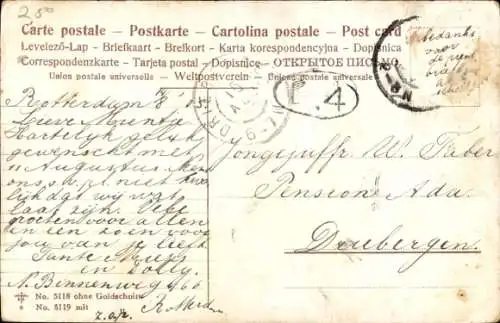 250
Carte postale – Postkarte – Cartolina postale – Post card
Levelező-Lap – Briefkaart – Brefkort – Karta korespondencyjna – Dopisnica
Correspondenzkarte – Tarjeta postal – Dopisnice – ОТКРЫТОЕ ПИСЬМО
Union postale universelle – Weltpostverein – Union postale universelle
bedankt
voor
de
4
Rotterdam 8
Lieve
Hartelijk gelukgewenscht met
11 Augustus.
ons niet
lijk dat wij vast
laat zijn. Vele
groeten voor allen
en een zoen voor
jou van je liefh.
Tante
en Dolly.
N. Binnenweg 166
Rotterdam
Jongejuffr. W. Faber
Pension Ada.
Doubergen.
No. 5118 ohne Goldschnitt
No. 5119 mit